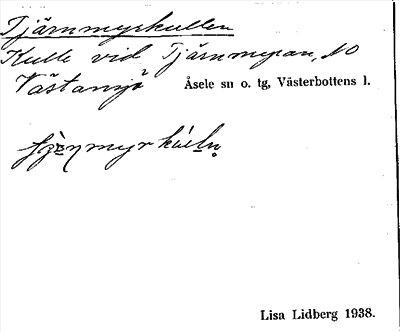 Tjärnmyrkullen
Kulle vid Tjärnmyran, NO
Västansjö Åsele sn o. tg, Västerbottens l.
Lisa Lidberg 1938.